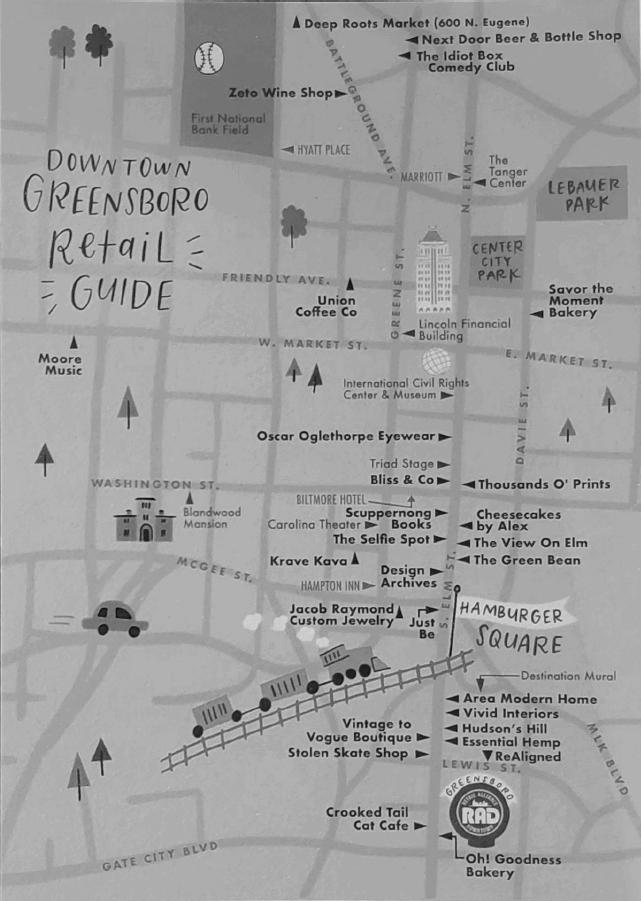 Deep Roots Market (600 N. Eugene)
Next Door Beer & Bottle Shop
The Idiot Box
Comedy Club
BATTLEGROUND AVE.
Zeto Wine Shop
First National
Bank Field
HYATT PLACE
MARRIOTT
N. ELM ST.
The
Tanger
Center
LEBAUER
PARK
DOWNTOWN
GREENSBORO
RETAIL
GUIDE
CENTER
CITY
PARK
FRIENDLY AVE.
GREENE ST.
Union
Coffee Co
Savor the
Moment
Bakery
Lincoln Financial
Building
W. MARKET ST.
E. MARKET ST.
Moore
Music
International Civil Rights
Center & Museum
DAVIE ST.
Oscar Oglethorpe Eyewear
Triad Stage
Bliss & Co
Thousands O' Prints
WASHINGTON ST.
Blandwood
Mansion
BILTMORE HOTEL
Scuppernong
Books
Carolina Theater
The Selfie Spot
Cheesecakes
by Alex
The View On Elm
The Green Bean
MCGEE ST.
Krave Kava
Design
Archives
HAMPTON INN
S. ELM ST.
Jacob Raymond
Custom Jewelry
Just
Be
HAMBURGER
SQUARE
Destination Mural
Area Modern Home
Vivid Interiors
Hudson's Hill
Essential Hemp
ReAligned
Vintage to
Vogue Boutique
Stolen Skate Shop
MLK BLVD
LEWIS ST.
GREENSBORO
RETAIL ALLIANCE
RAD
DOWNTOWN
Crooked Tail
Cat Cafe
Oh! Goodness
Bakery
GATE CITY BLVD